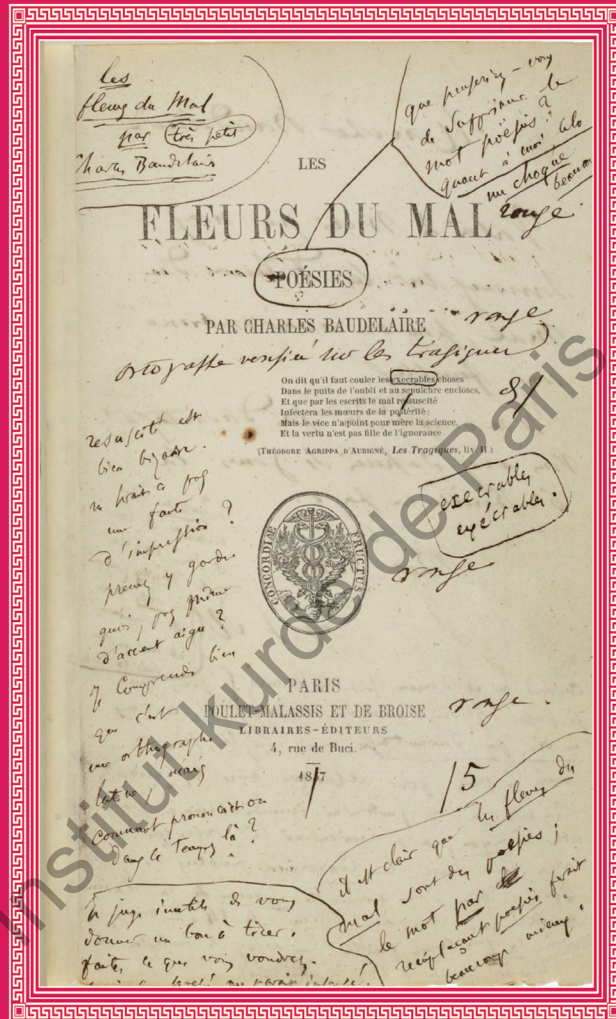 les
fleurs du Mal
par très petit
Charles Baudelaire
que penseriez-vous
de supprimer le
mot poésies ?
quant à moi cela
me choque
beaucoup
LES
FLEURS DU MAL
rouge
POÉSIES
PAR CHARLES BAUDELAIRE
rouge
ortografe vérifiée sur les tragiques
On dit qu'il faut couler les execrables choses
Dans le puits de l'oubli et au sepulchre encloses,
Et que par les escrits le mal resuscité
Infectera les mœurs de la postérité;
Mais le vice n'a point pour mère la science,
Et la vertu n'est pas fille de l'ignorance
(THÉODORE AGRIPPA D'AUBIGNÉ, Les Tragiques, liv. II.)
resuscité est
bien bizarre.
ne serait-ce pas
une faute
d'impression ?
prenez y garde.
quoi, pas même
d'accent aigu ?
Je comprends bien
que c'est
une orthographe
latine, mais
comment prononçait-on
dans le temps là ?
execrables
exécrables.
CONCORDIÆ FRUCTUS
rouge
PARIS
POULET-MALASSIS ET DE BROISE
rouge.
LIBRAIRES-ÉDITEURS
4, rue de Buci.
1857
5
il est clair que les fleurs du
mal sont des poésies ;
le mot par
remplaçant poésies ferait
beaucoup mieux.
Je juge inutile de vous
donner un bon à tirer.
faites ce que vous voudrez.
Institut kurde de Paris